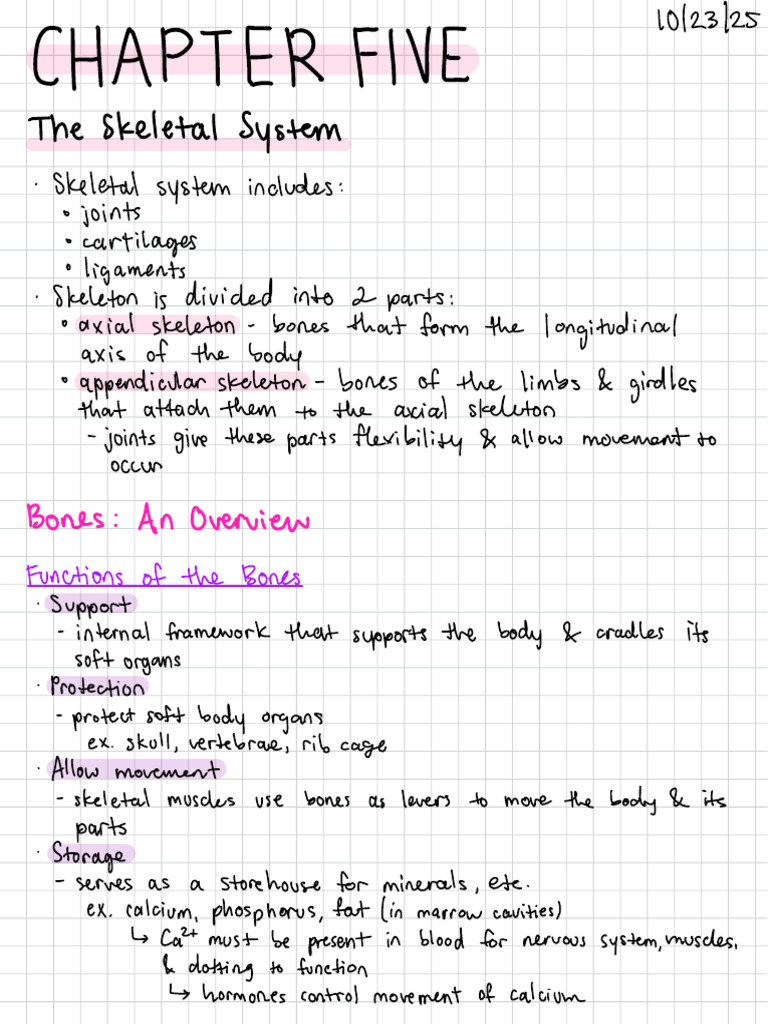 10/23/25
CHAPTER FIVE
The Skeletal System
· Skeletal system includes:
• joints
• cartilages
• ligaments
· Skeleton is divided into 2 parts:
• axial skeleton - bones that form the longitudinal
axis of the body
• appendicular skeleton - bones of the limbs & girdles
that attach them to the axial skeleton
- joints give these parts flexibility & allow movement to
occur
Bones: An Overview
Functions of the Bones
· Support
- internal framework that supports the body & cradles its
soft organs
· Protection
- protect soft body organs
ex. skull, vertebrae, rib cage
· Allow movement
- skeletal muscles use bones as levers to move the body & its
parts
· Storage
- serves as a storehouse for minerals, etc.
ex. calcium, phosphorus, fat (in marrow cavities)
↳ Ca²⁺ must be present in blood for nervous system, muscles,
& clotting to function
↳ hormones control movement of calcium